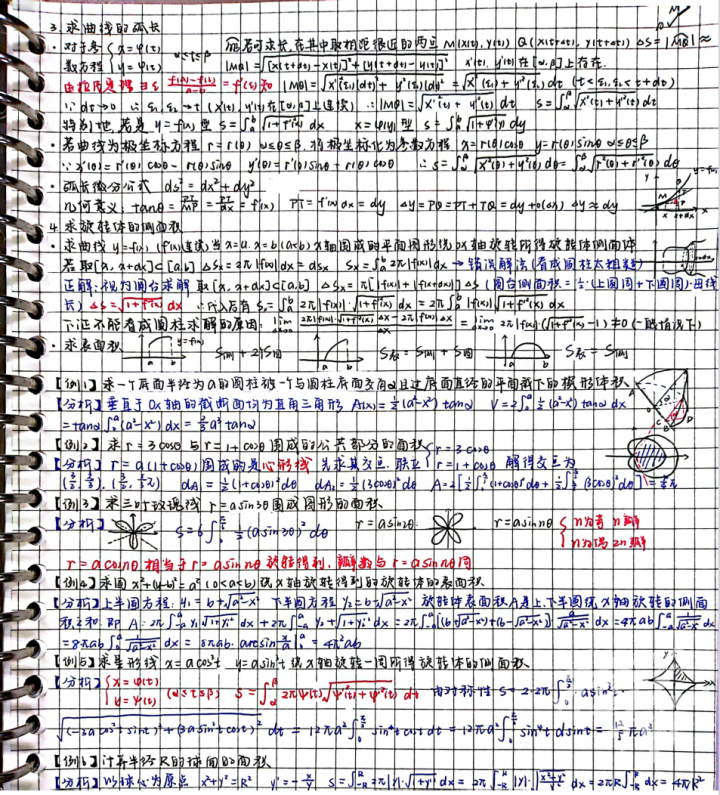 3. 求曲线的弧长
· 对于参数方程 { x = φ(t) y = ψ(t) α≤t≤β 在其中取相距很近的两点 M(x(t), y(t)) Q(x(t+dt), y(t+dt)) ΔS = |MQ| ≈
|MQ| = √[x(t+dt) - x(t)]² + [y(t+dt) - y(t)]² x'(t), y'(t) 在[α,β]上存在.
f(b)-f(a)/b-a = f'(ξ) 知 |MQ| = √x'²(ξ₁)dt² + y'²(ξ₂)dt² = √x'²(ξ₁) + y'²(ξ₂) dt (t<ξ₁,ξ₂<t+dt)
∵ dt→0 ∴ ξ₁, ξ₂→t (x'(t), y'(t)在[α,β]上连续) ∴ |MQ| = √x'²(t) + y'²(t) dt S = ∫_α^β √x'²(t) + y'²(t) dt
特别地, 若是 y = f(x) 型 S = ∫_a^b √1+f'²(x) dx x = φ(y) 型 S = ∫_a^b √1+φ'²(y) dy
· 若曲线为极坐标方程 r = r(θ) α≤θ≤β. 将极坐标化为参数方程 x = r(θ)cosθ y = r(θ)sinθ α≤θ≤β
∵ x'(θ) = r'(θ)cosθ - r(θ)sinθ y'(θ) = r'(θ)sinθ + r(θ)cosθ ∴ S = ∫_α^β √x'²(θ)+y'²(θ) dθ = ∫_α^β √r²(θ)+r'²(θ) dθ
· 弧长微分公式 ds² = dx² + dy²
几何意义: tanθ = PT/MP = PT/dx = f'(x) PT = f'(x)dx = dy Δy = PQ = PT+TQ = dy+o(Δx) Δy ≈ dy
4. 求旋转体的侧面积
· 求曲线 y=f(x) (f'(x)连续)当 x=a. x=b (a<b) x轴围成的平面图形绕 ox轴旋转所得旋转体侧面积
若取[x, x+dx]⊂[a,b] ΔSx = 2π|f(x)|dx = dSx Sx = ∫_a^b 2π|f(x)|dx → 错误解法(看成圆柱太粗糙)
正解: 视为圆台求解 取[x, x+dx]⊂[a,b] ΔSx = π[|f(x)| + |f(x+dx)|] ΔS (圆台侧面积 = ½·(上圆周+下圆周)·母线
长) ΔS = √1+f'²(x) dx ∴代入后有 Sx = ∫_a^b 2π|f(x)|·√1+f'²(x) dx = 2π∫_a^b |f(x)|√1+f'²(x) dx
下证不能看成圆柱求解的原因: lim_{Δx→0} 2π|f(x)|·√1+f'²(x) Δx - 2π|f(x)|Δx / Δx = lim_{Δx→0} 2π|f(x)|(√1+f'²(x) - 1) ≠ 0 (一般情况下)
· 求表面积 y=f(x) S侧 + 2S圆 S表 = S侧 + S圆 S表 = S侧
【例1】求一个底面半径为a的圆柱被一个与圆柱底面交角α且过底面直径的平面截下的楔形体积
【分析】垂直于 Ox轴的截断面均为直角三角形 A(x) = ½(a²-x²)tanα V = 2∫_0^a ½(a²-x²)tanα dx
= tanα∫_0^a (a²-x²) dx = ⅔a³tanα
【例2】求 r = 3cosθ 与 r = 1+cosθ 围成的公共部分的面积 { r = 3cosθ
【分析】r = a(1+cosθ)围成的是心形线 先求其交点. 联立 r = 1+cosθ 解得交点为
(3/2, π/3), (3/2, 5/3π) dA₁ = ½(1+cosθ)²dθ dA₂ = ½(3cosθ)²dθ A = 2[½∫_0^{π/3}(1+cosθ)²dθ + ½∫_{π/3}^{π/2}(3cosθ)²dθ] = 5/4π
【例3】求三叶玫瑰线 r = a sin3θ 围成图形的面积
【分析】 S = 6∫_0^{π/6} ½(a sin3θ)²dθ r = a sin2θ: r = a sin nθ { n为奇 n瓣
n为偶 2n瓣
r = a cos nθ 相当于 r = a sin nθ 旋转得到, 瓣数与 r = a sin nθ 同
【例4】求圆 x²+(y-b)² = a² (0<a≤b) 绕x轴旋转得到的旋转体的表面积
【分析】上半圆方程: y₁ = b+√a²-x² 下半圆方程 y₂ = b-√a²-x² 旋转体表面积A是上、下半圆绕x轴旋转的侧面
积之和 即 A = 2π∫_{-a}^a y₁√1+y₁'² dx + 2π∫_{-a}^a y₂√1+y₂'² dx = 2π∫_{-a}^a [(b+√a²-x²)+(b-√a²-x²)] a/√a²-x² dx = 4πab∫_{-a}^a 1/√a²-x² dx
= 8πab∫_0^a 1/√a²-x² dx = 8πab·arcsin x/a |_0^a = 4π²ab
【例5】求星形线 x = a cos³t y = a sin³t 绕x轴旋转一周所得旋转体的侧面积
【分析】{ x = φ(t) y = ψ(t) (α≤t≤β) S = ∫_α^β 2πψ(t)√φ'²(t)+ψ'²(t) dt 由对称性 S = 2·2π∫_0^{π/2} a sin³t·
√(-3a cos²t sint)² + (3a sin²t cost)² dt = 12πa²∫_0^{π/2} sin⁴t cost dt = 12πa²∫_0^{π/2} sin⁴t dsint = 12/5 πa²
【例6】计算半径R的球面的面积
【分析】以球心为原点 x²+y² = R² y' = -x/y S = ∫_{-R}^R 2π|y|·√1+y'² dx = 2π∫_{-R}^R |y|·√x²+y²/y² dx = 2πR∫_{-R}^R dx = 4πR²